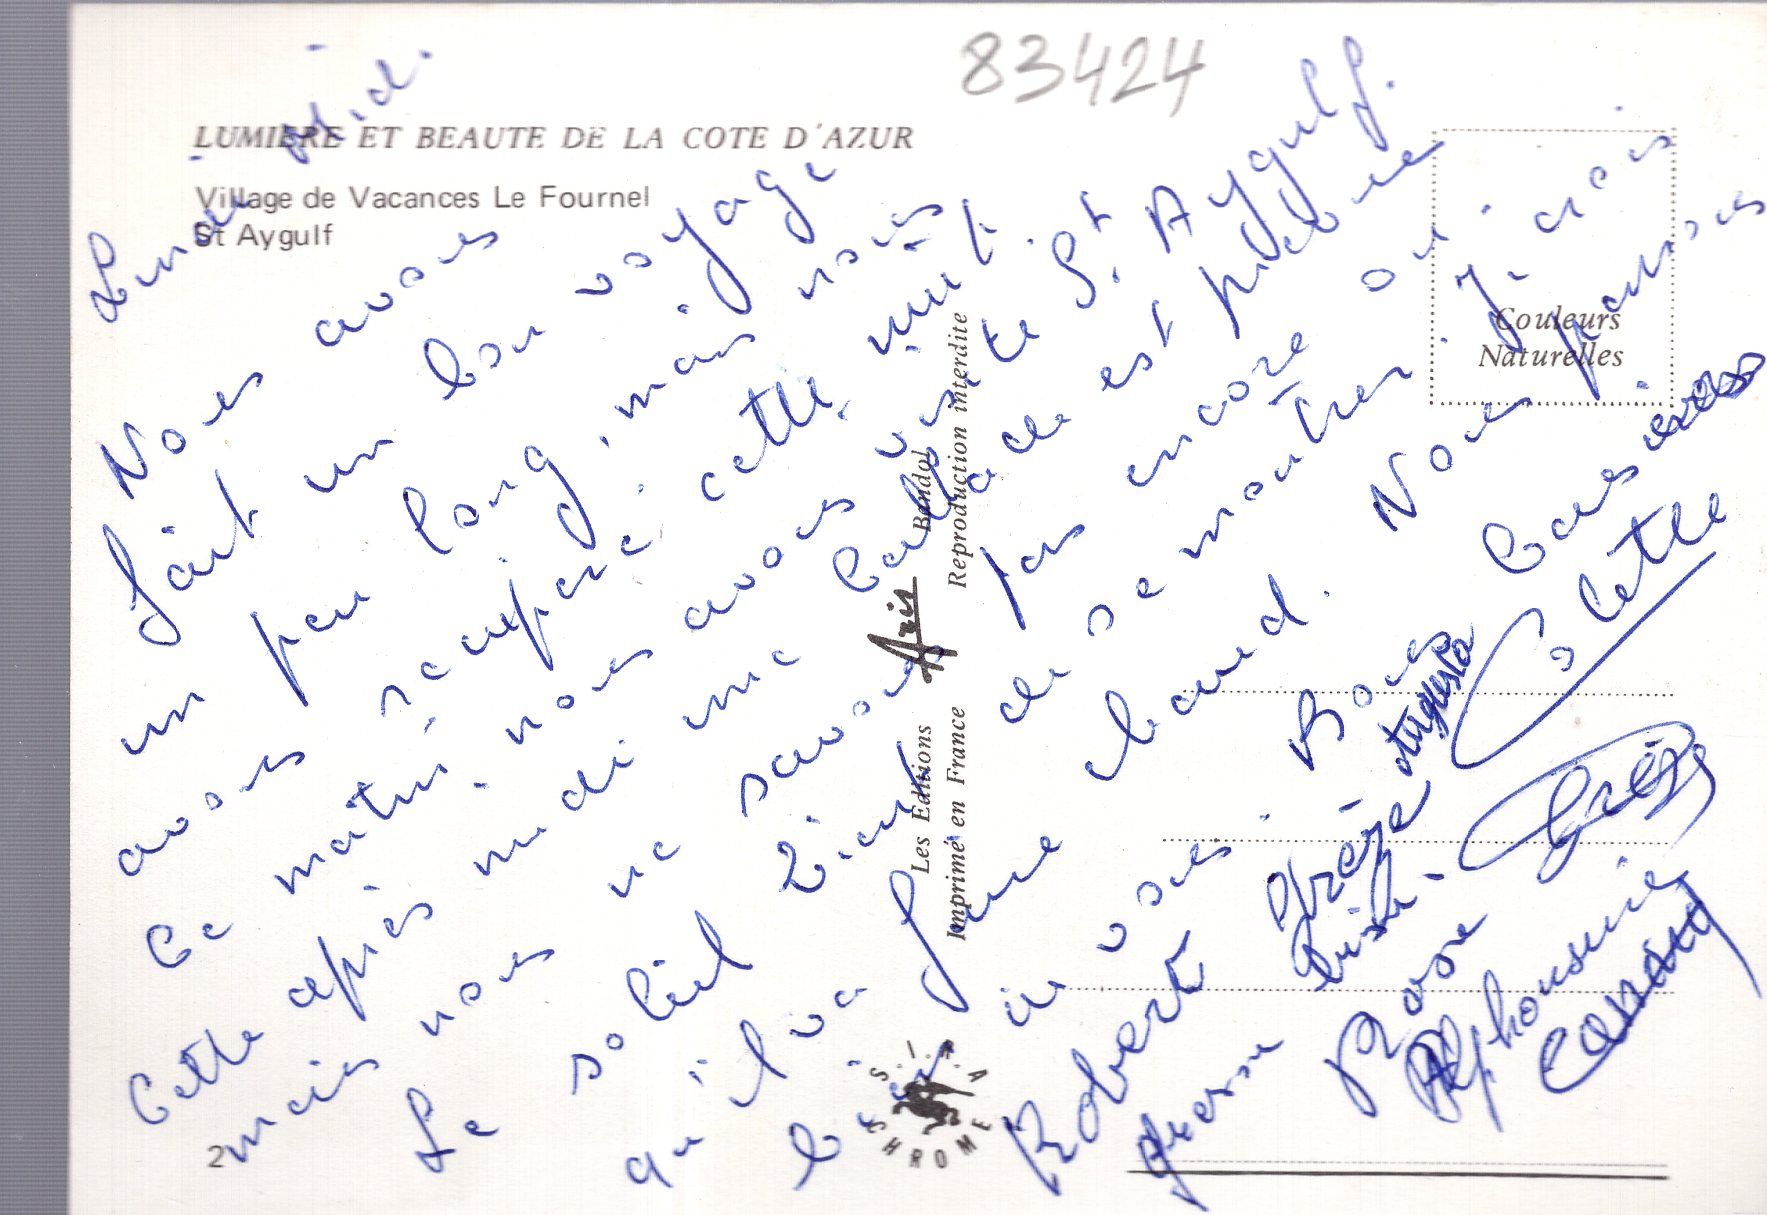 83424
LUMIERE ET BEAUTE DE LA COTE D'AZUR
Village de Vacances Le Fournel
St Aygulf
Couleurs
Naturelles
Lundi Midi.
Nous avons
fait un bon voyage
un peu long, mais nous
avons récupéré cette nuit.
Ce matin nous avons visité St Aygulf.
Cette après midi une ballade est prévue
mais nous ne savons pas encore où.
Le soleil vient de se montrer. Je crois
qu'il va faire chaud. Nous pensons
bien à vous. Bons baisers
Colette
Robert
Augusta
Rose
Alphonsine
Les Editions Aris Bandol
Imprimé en France Reproduction interdite
S.I.R.A
CHROME
2